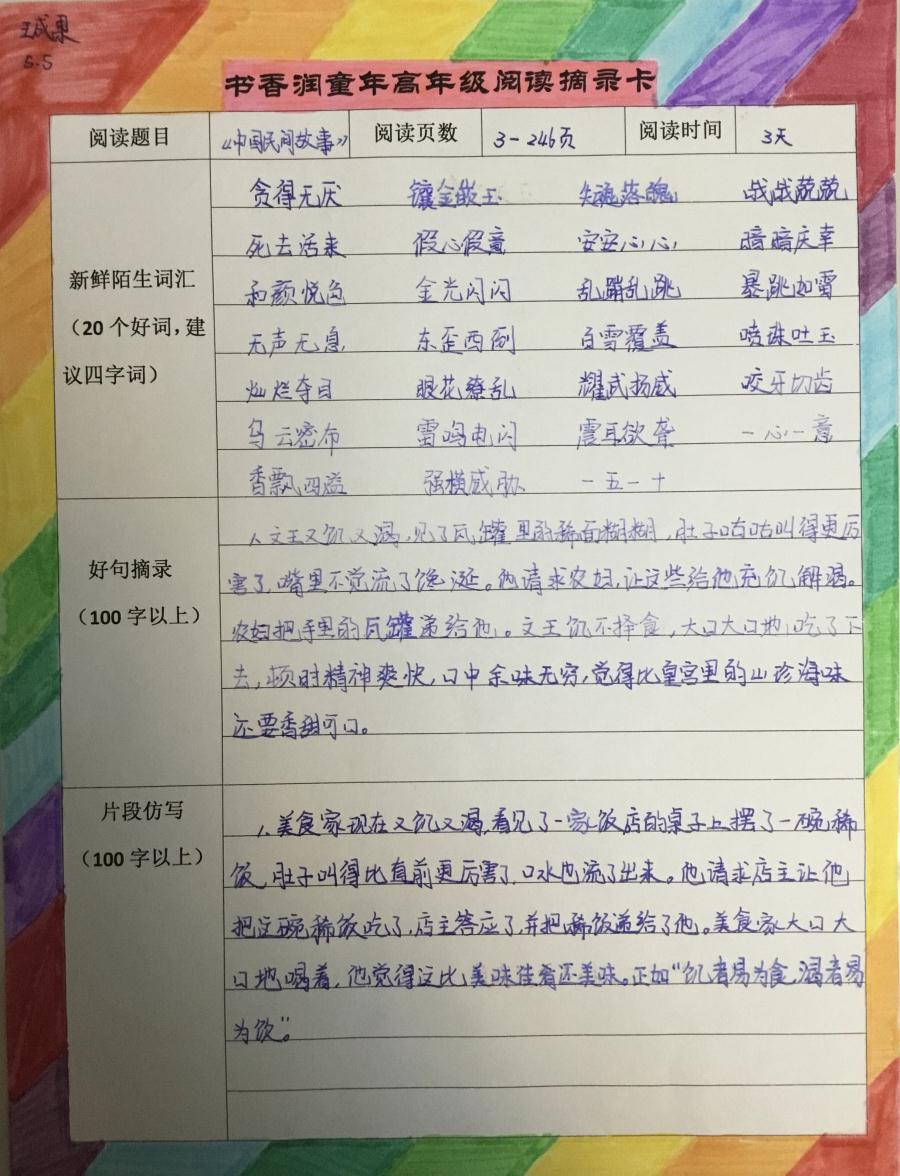 王成果
5.5
书香润童年高年级阅读摘录卡
阅读题目 《中国民间故事》 阅读页数 3-246页 阅读时间 3天
新鲜陌生词汇
（20个好词，建
议四字词）
贪得无厌 镶金嵌玉 失魂落魄 战战兢兢
死去活来 假心假意 安安心心 暗暗庆幸
和颜悦色 金光闪闪 乱蹦乱跳 暴跳如雷
无声无息 东歪西倒 白雪覆盖 喷珠吐玉
灿烂夺目 眼花缭乱 耀武扬威 咬牙切齿
乌云密布 雷鸣电闪 震耳欲聋 一心一意
香飘四溢 强横威胁 一五一十
好句摘录
（100字以上）
1、文王又饥又渴，见了瓦罐里的稀面糊糊，肚子咕咕叫得更厉
害了，嘴里不觉流了馋涎。他请求农妇，让这些给他充饥解渴。
农妇把手里的瓦罐递给他。文王饥不择食，大口大口地吃了下
去，顿时精神爽快，口中余味无穷，觉得比皇宫里的山珍海味
还要香甜可口。
片段仿写
（100字以上）
1、美食家现在又饥又渴，看见了一家饭店的桌子上摆了一碗稀
饭，肚子叫得比直前更厉害了，口水也流了出来。他请求店主让他
把这碗稀饭吃了，店主答应了，并把稀饭递给了他。美食家大口大
口地喝着，他觉得这比美味佳肴还美味。正如“饥者易为食，渴者易
为饮”。